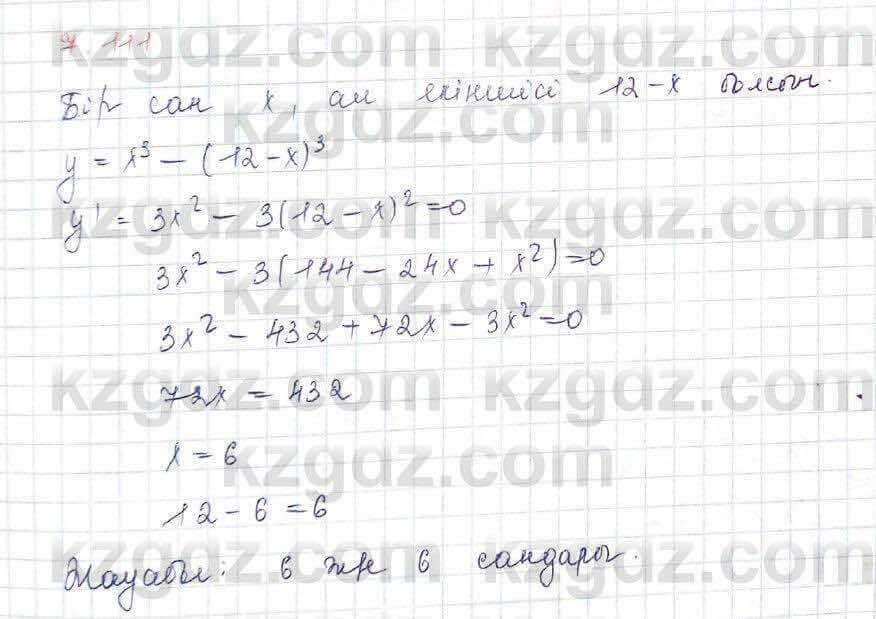 7.111
Бір сан x, ал екіншісі 12-x болсын.
y = x³ - (12-x)³
y' = 3x² - 3(12-x)² = 0
3x² - 3(144 - 24x + x²) = 0
3x² - 432 + 72x - 3x² = 0
72x = 432
x = 6
12 - 6 = 6
Жауабы: 6 жне 6 сандары.
kzgdz.com
kzgdz.com
kzgdz.com
kzgdz.com
kzgdz.com
kzgdz.com
kzgdz.com
kzgdz.com
kzgdz.com
kzgdz.com
kzgdz.com